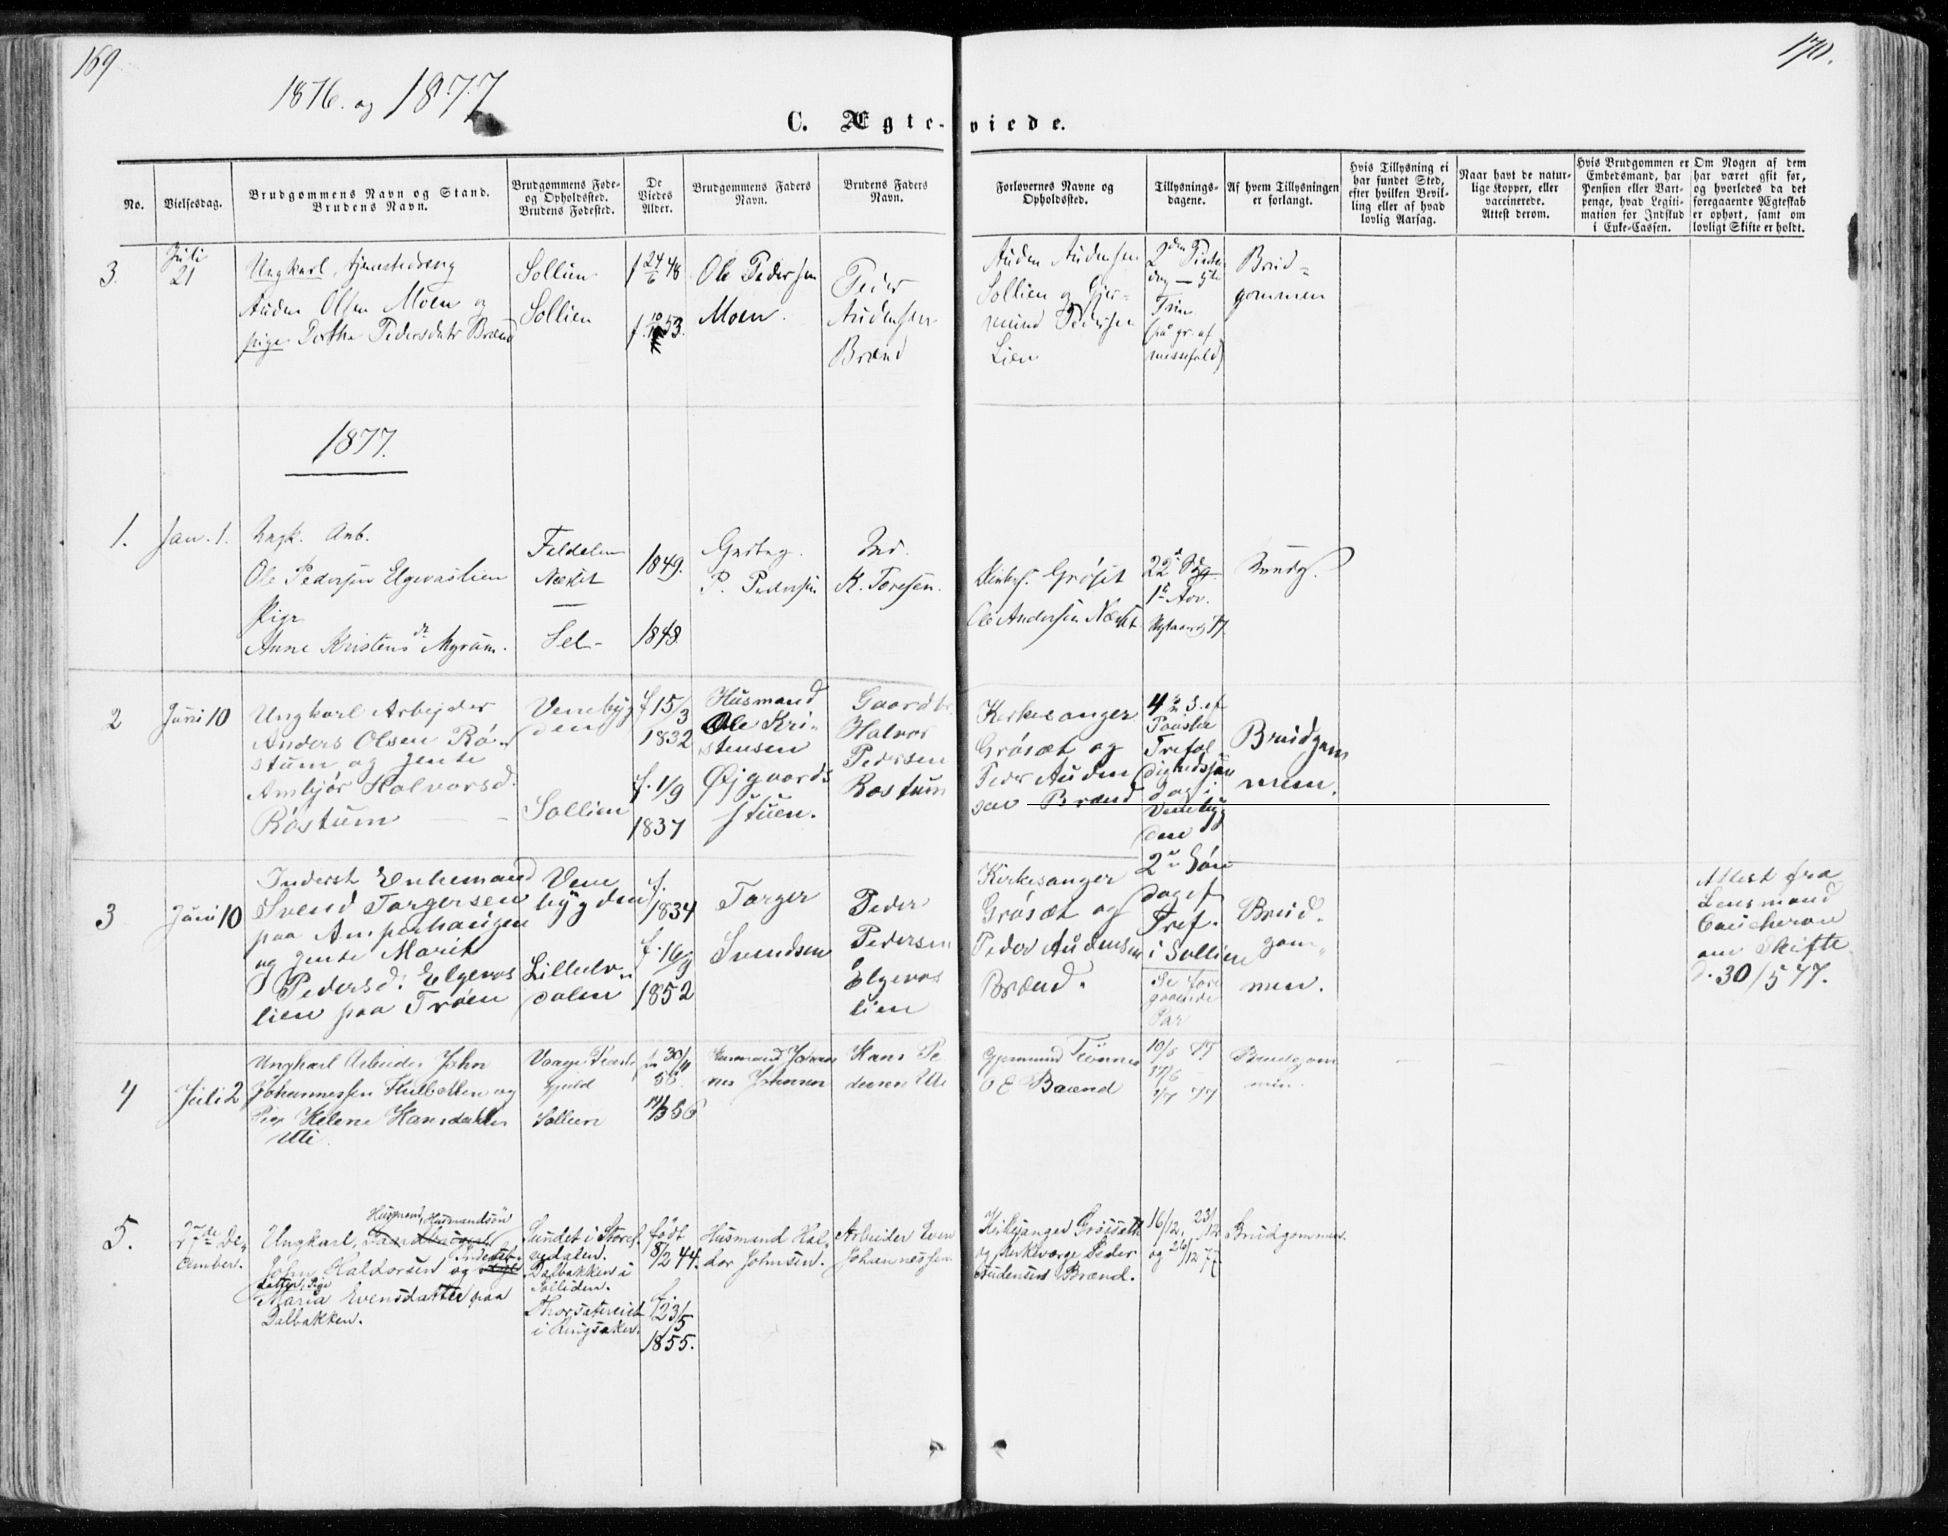 169
170.
1876. og 1877
C. Ægte-viede.
No.
Vielsesdag.
Brudgommens Navn og Stand.
Brudens Navn.
Brudgommens Føde-
og Opholdssted.
Brudens Fødested.
De
Viedes
Alder.
Brudgommens Faders
Navn.
Brudens Faders
Navn.
Forlovernes Navne og
Opholdssted.
Tillysnings-
dagene.
Af hvem Tillysningen
er forlangt.
Hvis Tillysning ei
har fundet Sted,
efter hvilken Bevil-
ling eller af hvad
lovlig Aarsag.
Naar havt de natur-
lige Kopper, eller
vaccinerede.
Attest derom.
Hvis Brudgommen er
Embedsmand, har
Pension eller Vart-
penge, hvad Legiti-
mation for Indskud
i Enke-Cassen.
Om Nogen af dem
har været gift før,
og hvorledes da det
foregaaende Ægteskab
er ophørt, samt om
lovligt Skifte er holdt.
3.
Juli
21
Ungkarl,
Auden Olsen Moen og
pige Perthe Pedersdatr Brænd
Sollien
Sollien
f 24/6 48
53.
Ole Pedersen
Moen.
Peder
Audensen
Brænd
Auden Audensen
Sollien og Gjer-
mund Pedersen
Lien
2den Pintse
dag — 5te
Trin
(på gr. af
messefald)
Brud-
gommen
1877.
1.
Jan. 1.
Ungk. Arb.
Ole Pedersen Elgevaslien
Pige
Anne Kristensdr Myrum.
Foldalen
Næset
Sel-
1849.
1848
Gaardbg.
P. Pedersen
Ind.
K. Toresen.
Grøset
Ole Andersen Næset
22d Søg
1ste Adv.
Nytaarsdg 77
Brudg.
2
Juni 10
Ungkarl Arbejder
Anders Olsen Rö-
stum og jente
Ambjör Halvorsd.
Röstum
Venebyg
den
Sollien
f 15/3
1832
f. 1/9
1837
Husmand
Ole Kri-
stensen
Øjgaards
stuen.
Gaardbr.
Halvor
Pedersen
Rostum
Kirkesanger
Grösæt og
Peder Auden
sen Brænd
4de S. ef
Paaske
Trefol
dighedssøn
dag i
Venebyg
den
Brudgom
men.
3
Juni 10
Inderst Enkemand
Svend Torgersen
paa Amperhaugen
og jente Marit
Pedersd. Elgevas
lien paa Trøen
Vene
bygden
Lilleelv-
dalen
f.
1834
f. 16/9
1852
Torger
Svendsen
Peder
Pedersen
Elgevas
lien
Kirkesanger
Grösæt og
Peder Audensen
Brænd.
2den Søn
dag ef
Tref.
i Sollien
Se fore
gaaende
Par
Brud-
gom-
men.
Attest fra
Lensmand
Caucheron
om Skifte
d. 30/5 77.
4
Juli 2
Ungkarl Arbeider John
Johannessen Hulbækken og
Pige Helene Hansdatter
Utti
Vaage Præste
gjeld
Sollien
30/4
58.
56
Husmand Johan
nes Johnsen
Hans Pe
dersen Uti
Gjermund Trønnes
O E Brænd
10/5 77
17/6
1/7 77
Brudgom
men.
5.
27de De-
cember.
Husmand, Husmandssön
Ungkarl,
John Haldorsen og
Inderst
datter, Pige
Maria Evensdatter paa
Dalbakken.
Sundet i Storel-
vedalen.
Dalbakken i
Solliden.
Thorsætereiet
i Ringsaker.
född
8/2 44.
f.
23/5
1855.
Husmand Hal-
dor Johnsen.
Arbeider Even
Johannessen.
Kirkesanger Grøsseth
og Kirkeværge Peder
Audensen Brænd.
16/12, 23/12
og 26/12 77
Brudgommen.